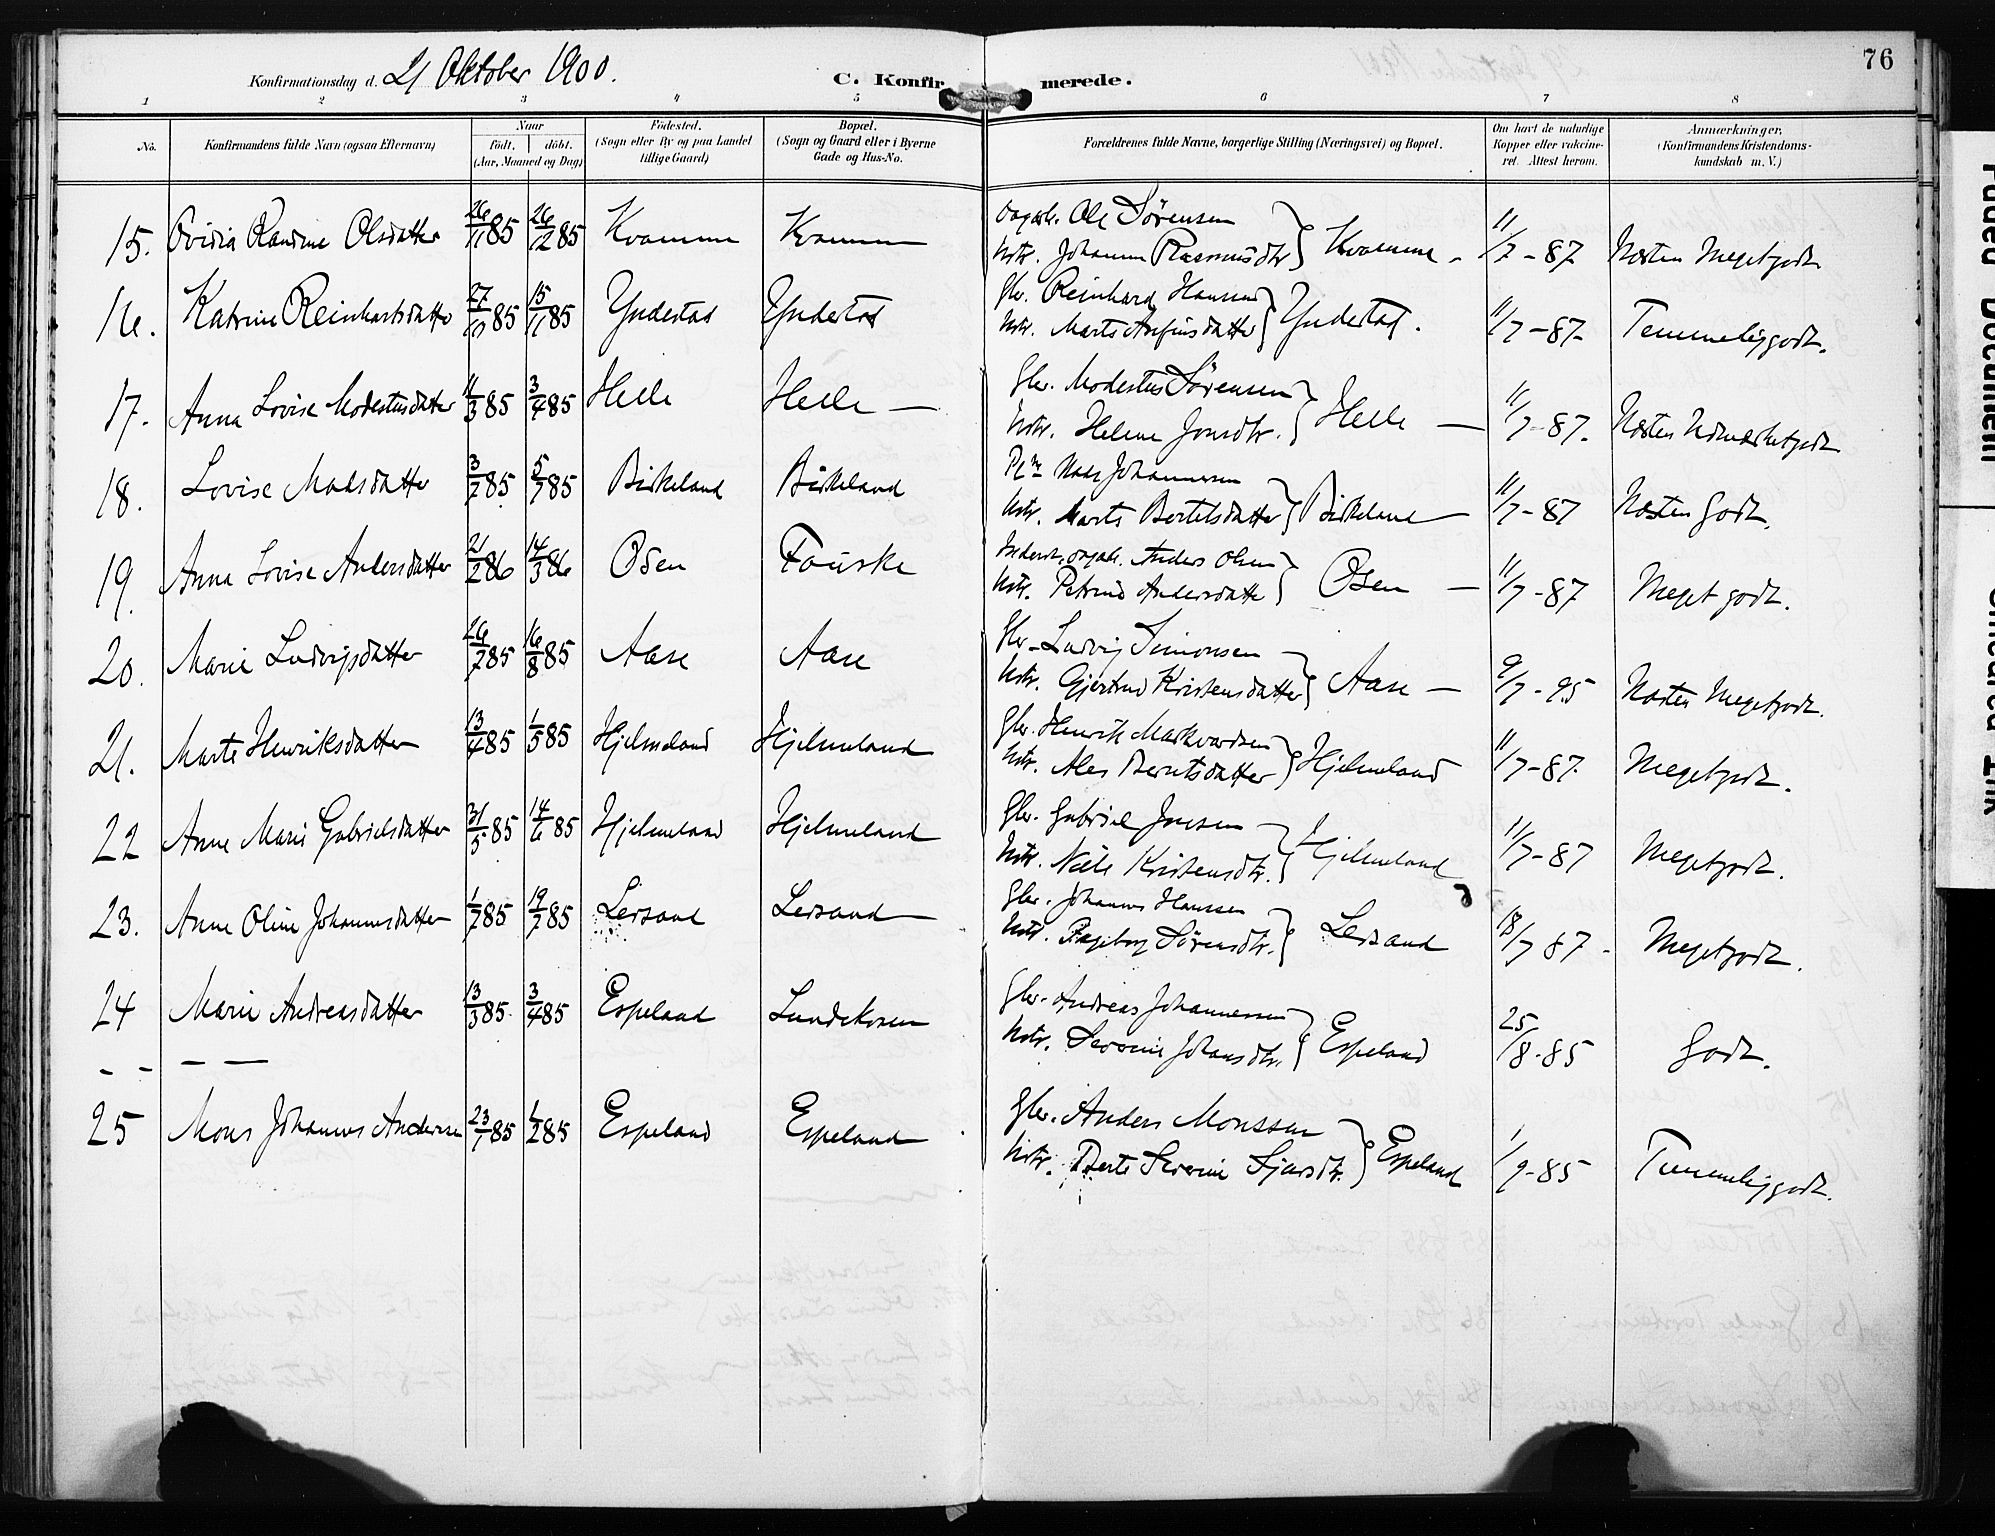 76
Konfirmationsdag d. 21 Oktober 1900.
C. Konfirmerede.
1 2 3 4 5 6 7 8
No.
Konfirmandens fulde Navn (ogsaa Efternavn)
Naar
født. døbt.
(Aar, Maaned og Dag)
Fødested.
(Sogn eller By og paa Landet
tillige Gaard)
Bopæl.
(Sogn og Gaard eller i Byerne
Gade og Hus-No.
Forældrenes fulde Navne, borgerlige Stilling (Næringsvei) og Bopæl.
Om havt de naturlige
Kopper eller vakcine-
ret. Attest herom.
Anmærkninger.
(Konfirmandens Kristendoms-
kundskab m. V.)
15. Ovidia Randine Olsdatter 26/11 85 26/12 85 Kvamme Kvamme Ole Sörensen
Hstr. Johanne Rasmusdtr } Kvamme - 11/7-87 Næsten Meget godt
16. Katrine Reinhartsdatter 27/10 85 15/11 85 Yndestad Yndestad Gbr. Reinhard Hansen
Hstr. Marte Anfinsdatter } Yndestad. 11/7-87- Temmelig godt.
17. Anna Lovise Modestusdatter 11/3 85 3/4 85 Helle Helle — Gbr. Modestus Sörensen
Hstr. Helene Jonsdtr. } Helle — 11/7-87. Næsten Udmærket godt
18. Lovise Madsdatter 3/7 85 5/7 85 Birkeland Birkeland Mads Johannesen
Hstr. Marte Bertelsdatter } Birkeland — 11/7-87 Næsten godt.
19. Anna Lovise Andersdatter 21/2 86 14/3 86 Osen Fauske Anders Olsen
Hstr. Petrine Andersdatter } Osen — 11/7-87 Meget godt.
20. Marie Ludvigsdatter 26/7 85 16/8 85 Aase Aase Gbr. Ludvig Simonsen
Hstr. Gjertrud Kristensdatter } Aase — 9/7-95 Næsten Meget godt.
21. Marte Henriksdatter 13/4 85 1/5 85 Hjelmeland Hjelmeland Gbr. Henrik Markvardsen
Hstr. Ales Berntsdatter } Hjelmeland 11/7-87. Meget godt.
22 Anne Marie Gabrielsdatter 31/5 85 14/6 85 Hjelmeland Hjelmeland Gbr. Gabriel Jonsen
Hstr. Nille Kristensdtr. } Hjelmeland 11/7-87 Meget godt.
23. Anne Oline Johannesdatter 1/7 85 19/7 85 Leirsand Leirsand Gbr. Johannes Hanssen
Hstr. Ragnborg Sörensdtr. } Leirsand 18/7 87. Meget godt.
24 Marie Andreasdatter 13/3 85. 3/4 85 Espeland Lundekvam Gbr. Andreas Johannessen
Hstr. Severine Johansdtr. } Espeland 25/8-85 Godt.
- - — —
25 Mons Johannes Andersen 23/1 85 1/2 85 Espeland Espeland Gbr. Anders Monssen
Hstr. Berte Severine Sjursdtr. } Espeland 1/9-85 Temmelig godt.
Faded Document